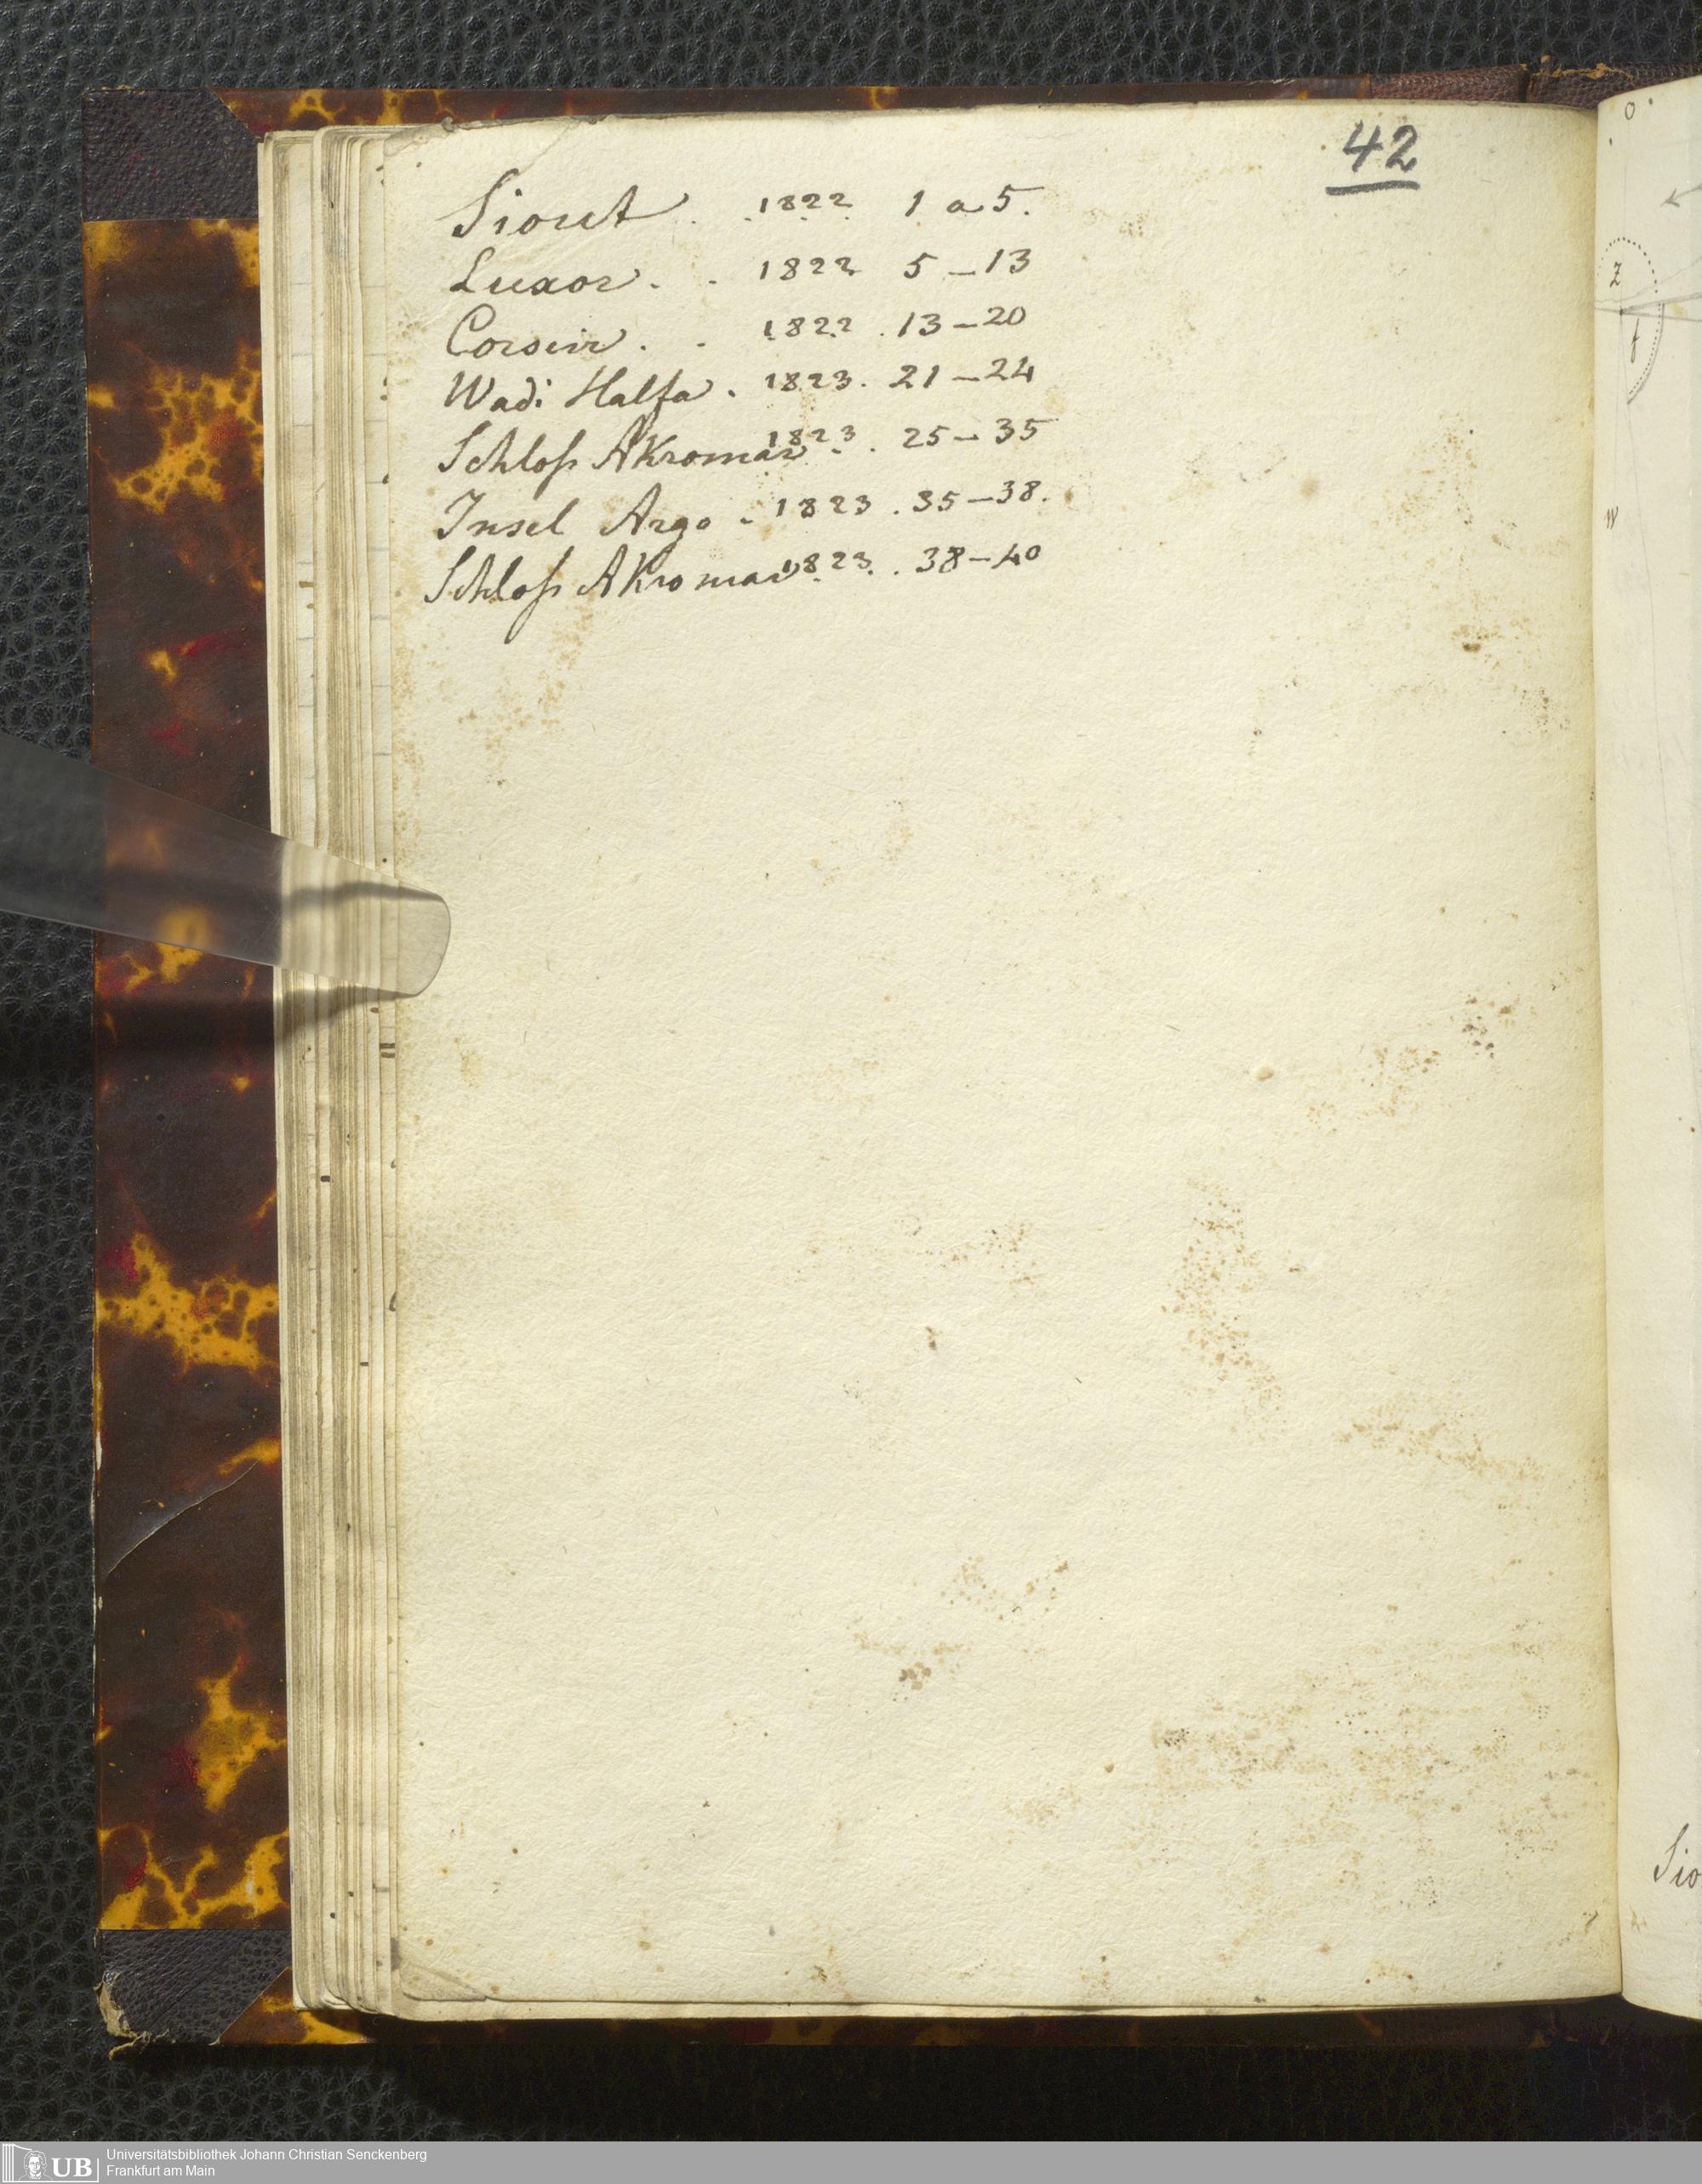 42
Siout . . 1822 1 a 5.
Luxor . . 1822 5 – 13
Cosseir . . 1822 . 13 – 20
Wadi Halfa . 1823 . 21 – 24
Schloß Akromar 1823 . . 25 – 35
Insel Argo . 1823 . 35 – 38.
Schloß Akromar 1823 . . 38 – 40
O
Z
f
W
Sio
UB Universitätsbibliothek Johann Christian Senckenberg
Frankfurt am Main